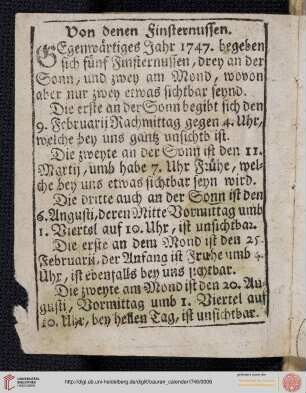 Von denen Finsternussen.
GEgenwärtiges Jahr 1747. begeben
sich fünf Finsternussen, drey an der
Sonn, und zwey am Mond, wovon
aber nur zwey etwas sichtbar seynd.
Die erste an der Sonn begibt sich den
9. Februarii Nachmittag gegen 4. Uhr,
welche bey uns gantz unsichtb ist.
Die zweyte an der Sonn ist den 11.
Martij, umb habe 7. Uhr Frühe, wel-
che bey uns etwas sichtbar seyn wird.
Die dritte auch an der Sonn ist den
6. Augusti, deren Mitte Vormittag umb
1. Viertel auf 10. Uhr, ist unsichtbar.
Die erste an dem Mond ist den 25.
Februarii, der Anfang ist Fruhe umb 4.
Uhr, ist ebenfalls bey uns sichtbar.
Die zweyte am Mond ist den 20. Au-
gusti, Vormittag umb 1. Viertel auf
10. Uhr, bey hellen Tag, ist unsichtbar.
UNIVERSITÄTS-
BIBLIOTHEK
HEIDELBERG
http://digi.ub.uni-heidelberg.de/diglit/bauren_calender1746/0006